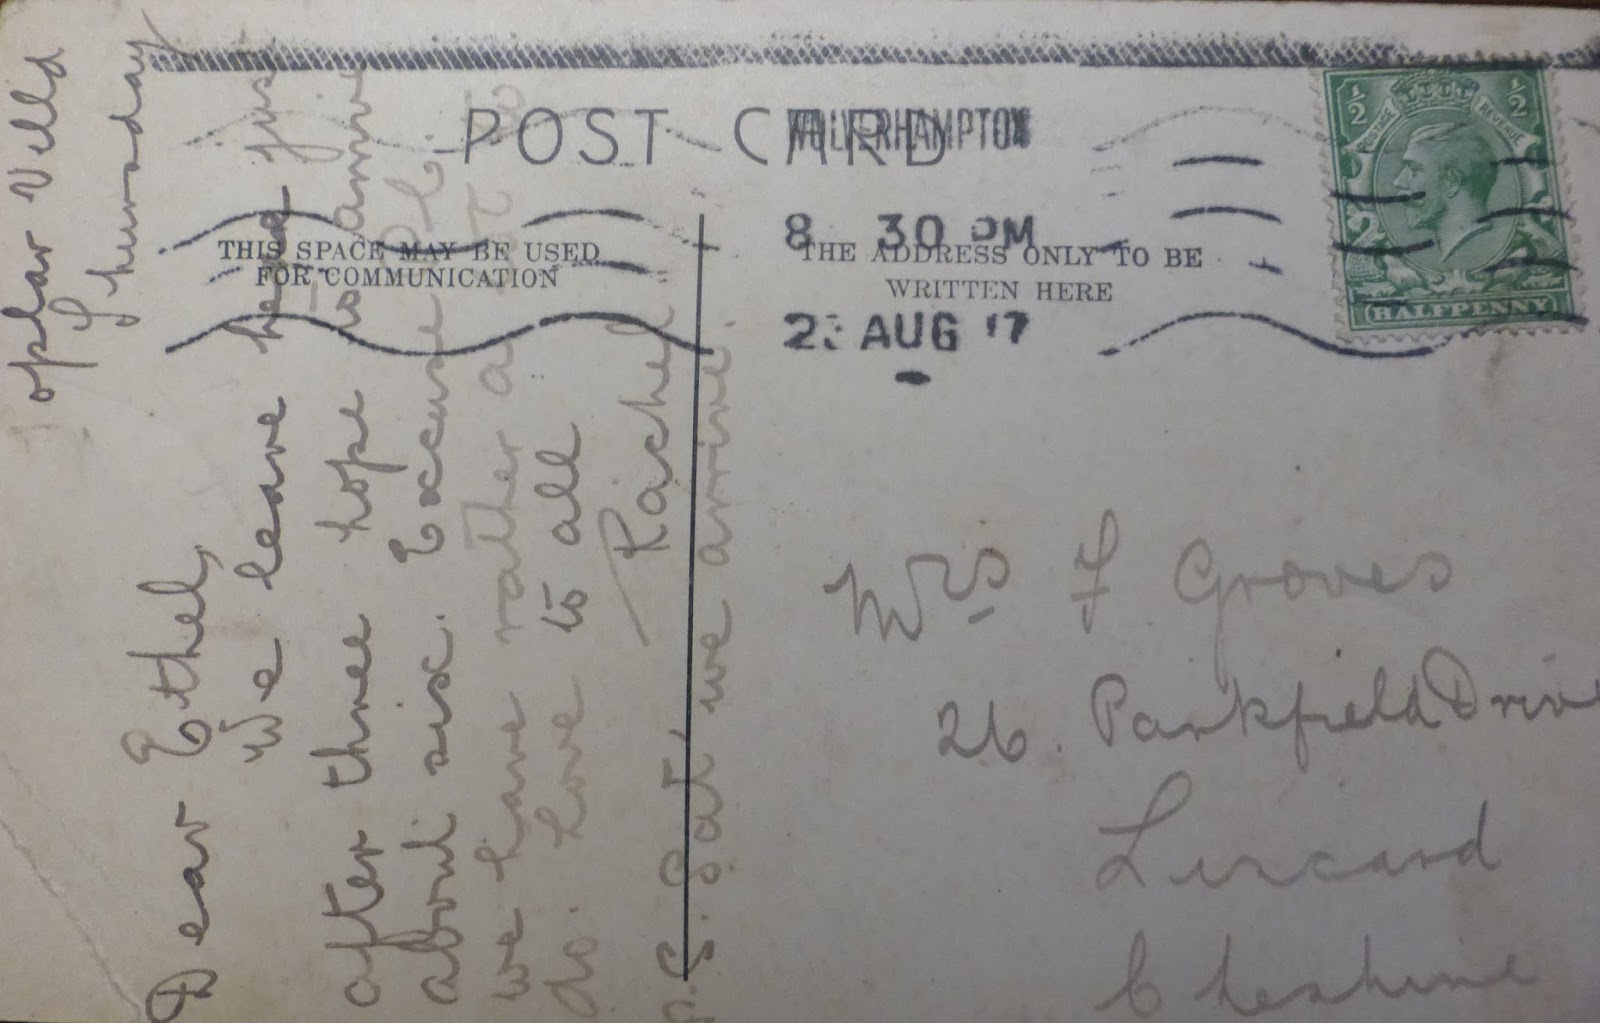 POST CARD
WOLVERHAMPTON
8 30 PM
2 AUG 17
THIS SPACE MAY BE USED
FOR COMMUNICATION
THE ADDRESS ONLY TO BE
WRITTEN HERE
1/2 1/2
POSTAGE REVENUE
HALFPENNY
oplar Villa
Thursday
Dear Ethel,
We leave here just
after three hope to arrive
about six. Excuse P.C.
we have rather a lot to
do. Love to all
Rachel
P.S. Sat, we arrive.
Mrs F Groves
26. Parkfield Drive
Liscard
Cheshire